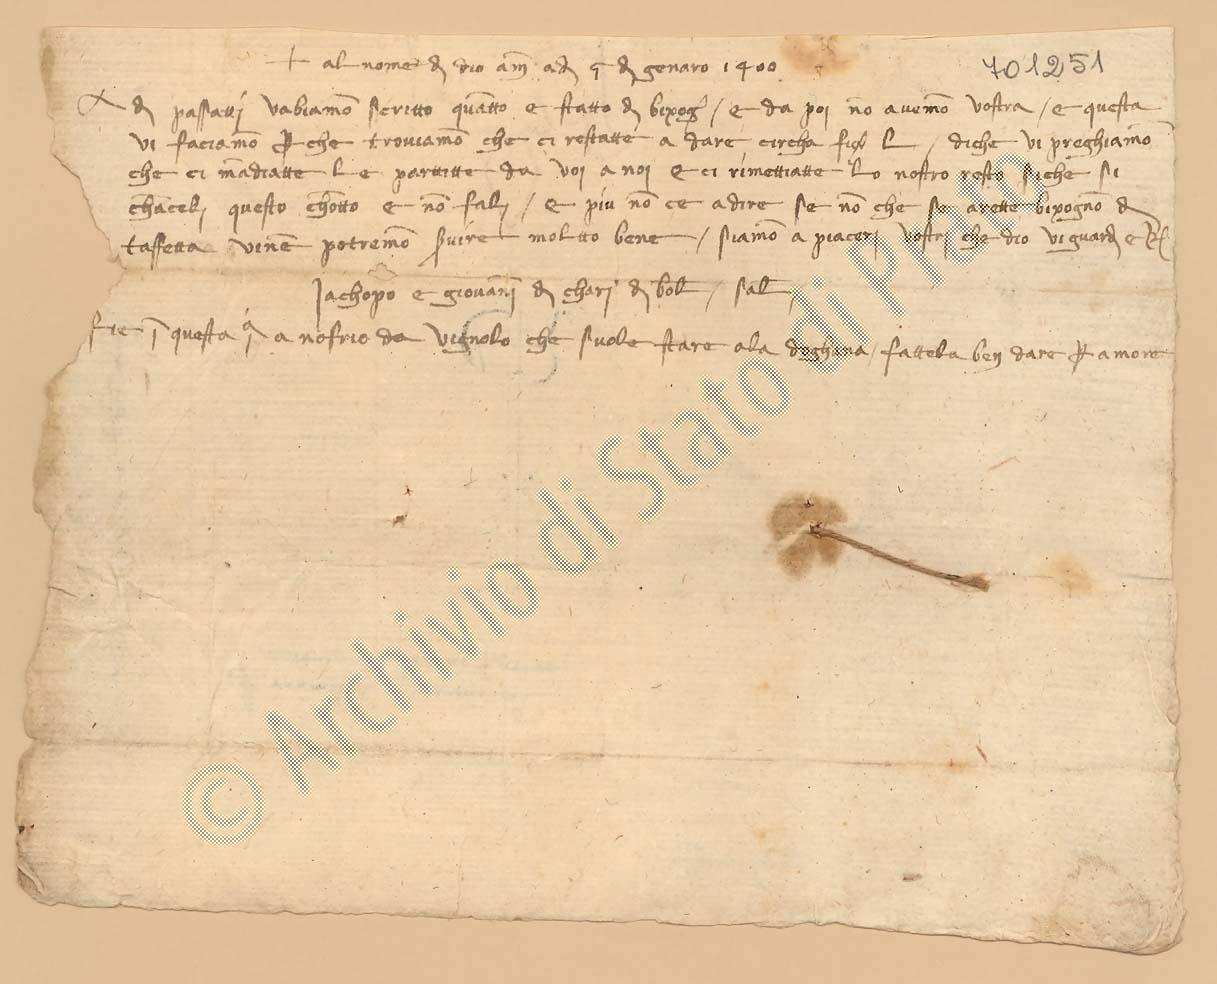 + al nome d dio am ad 5 d genaro 1400
701251
A d passatti vabiamo scritto quatto e statto d bixog / e da poi no avemo vostra / e questa
vi faciamo p che troviamo che ci restatte a dare circha L / diche vi preghiamo
che ci madiatte le partitte da voi a noi e ci rimettiatte lo nostro resto siche si
chaceli questo chotto e no fali / e più no ce a dire se no che se arette bixogno d
taffetta vine potremo svire moltto bene / siamo a piaceri vostri che dio vi guard e
Jachopo e giovani d chari d bol / sal /
fie i questa a nofrio da vignolo che suole stare ala doghana / fattela ben dare p amore
© Archivio di Stato di Prato